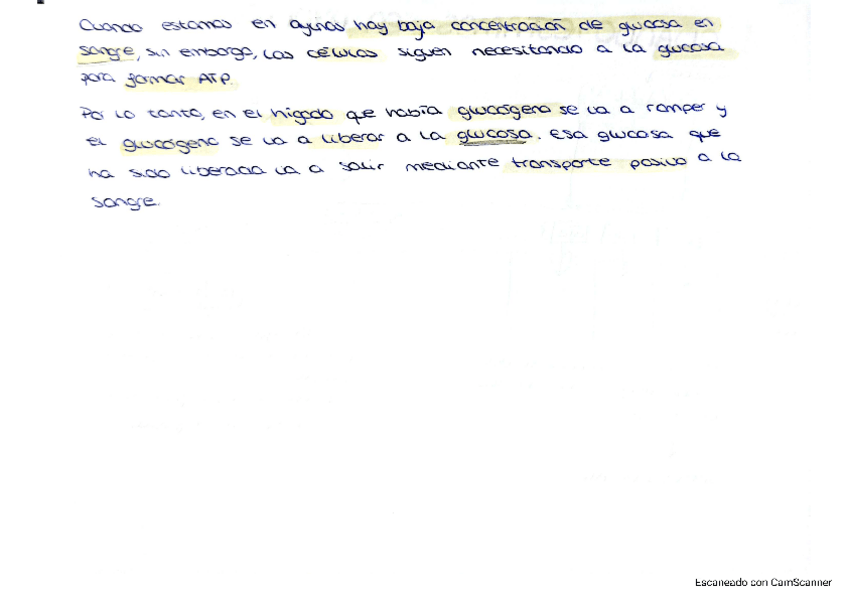 Cuando estamos en ayunas hay baja concentración de glucosa en
sangre, sin embargo, las células siguen necesitando a la glucosa
para formar ATP.
Por lo tanto, en el hígado que había glucógeno se va a romper y
el glucógeno se va a liberar a la glucosa. Esa glucosa que
ha sido liberada va a salir mediante transporte pasivo a la
sangre.
Escaneado con CamScanner